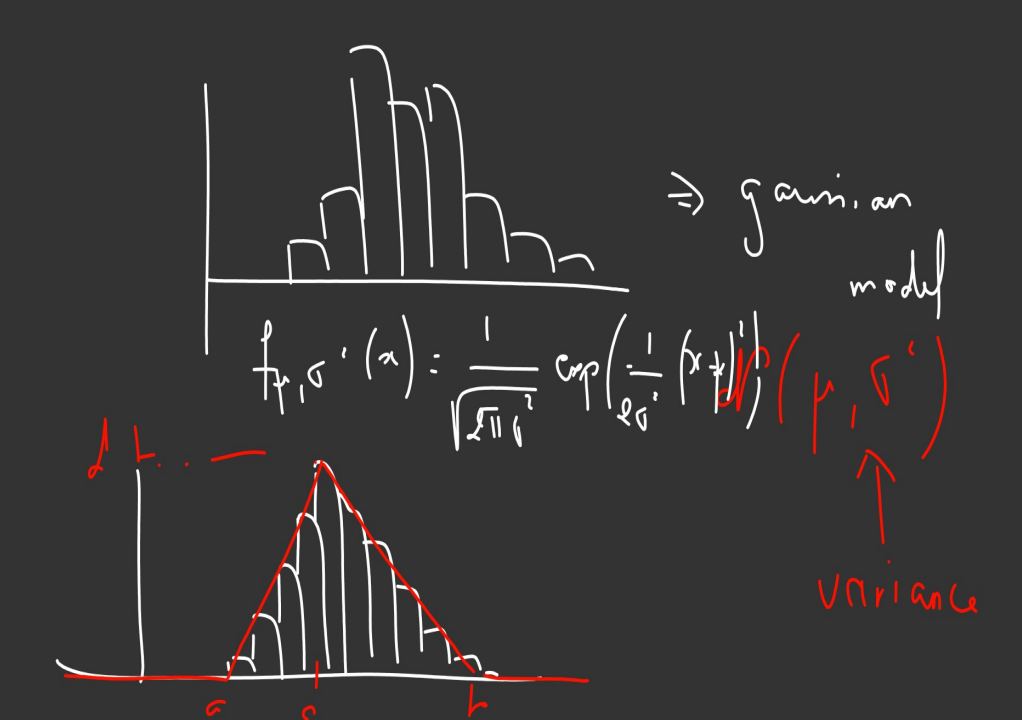 ⇒ gaussian
model
f_{μ,σ²}(x) = 1/√(2πσ²) exp(-1/(2σ²) (x-μ)²)
N(μ, σ²)
variance
a c b